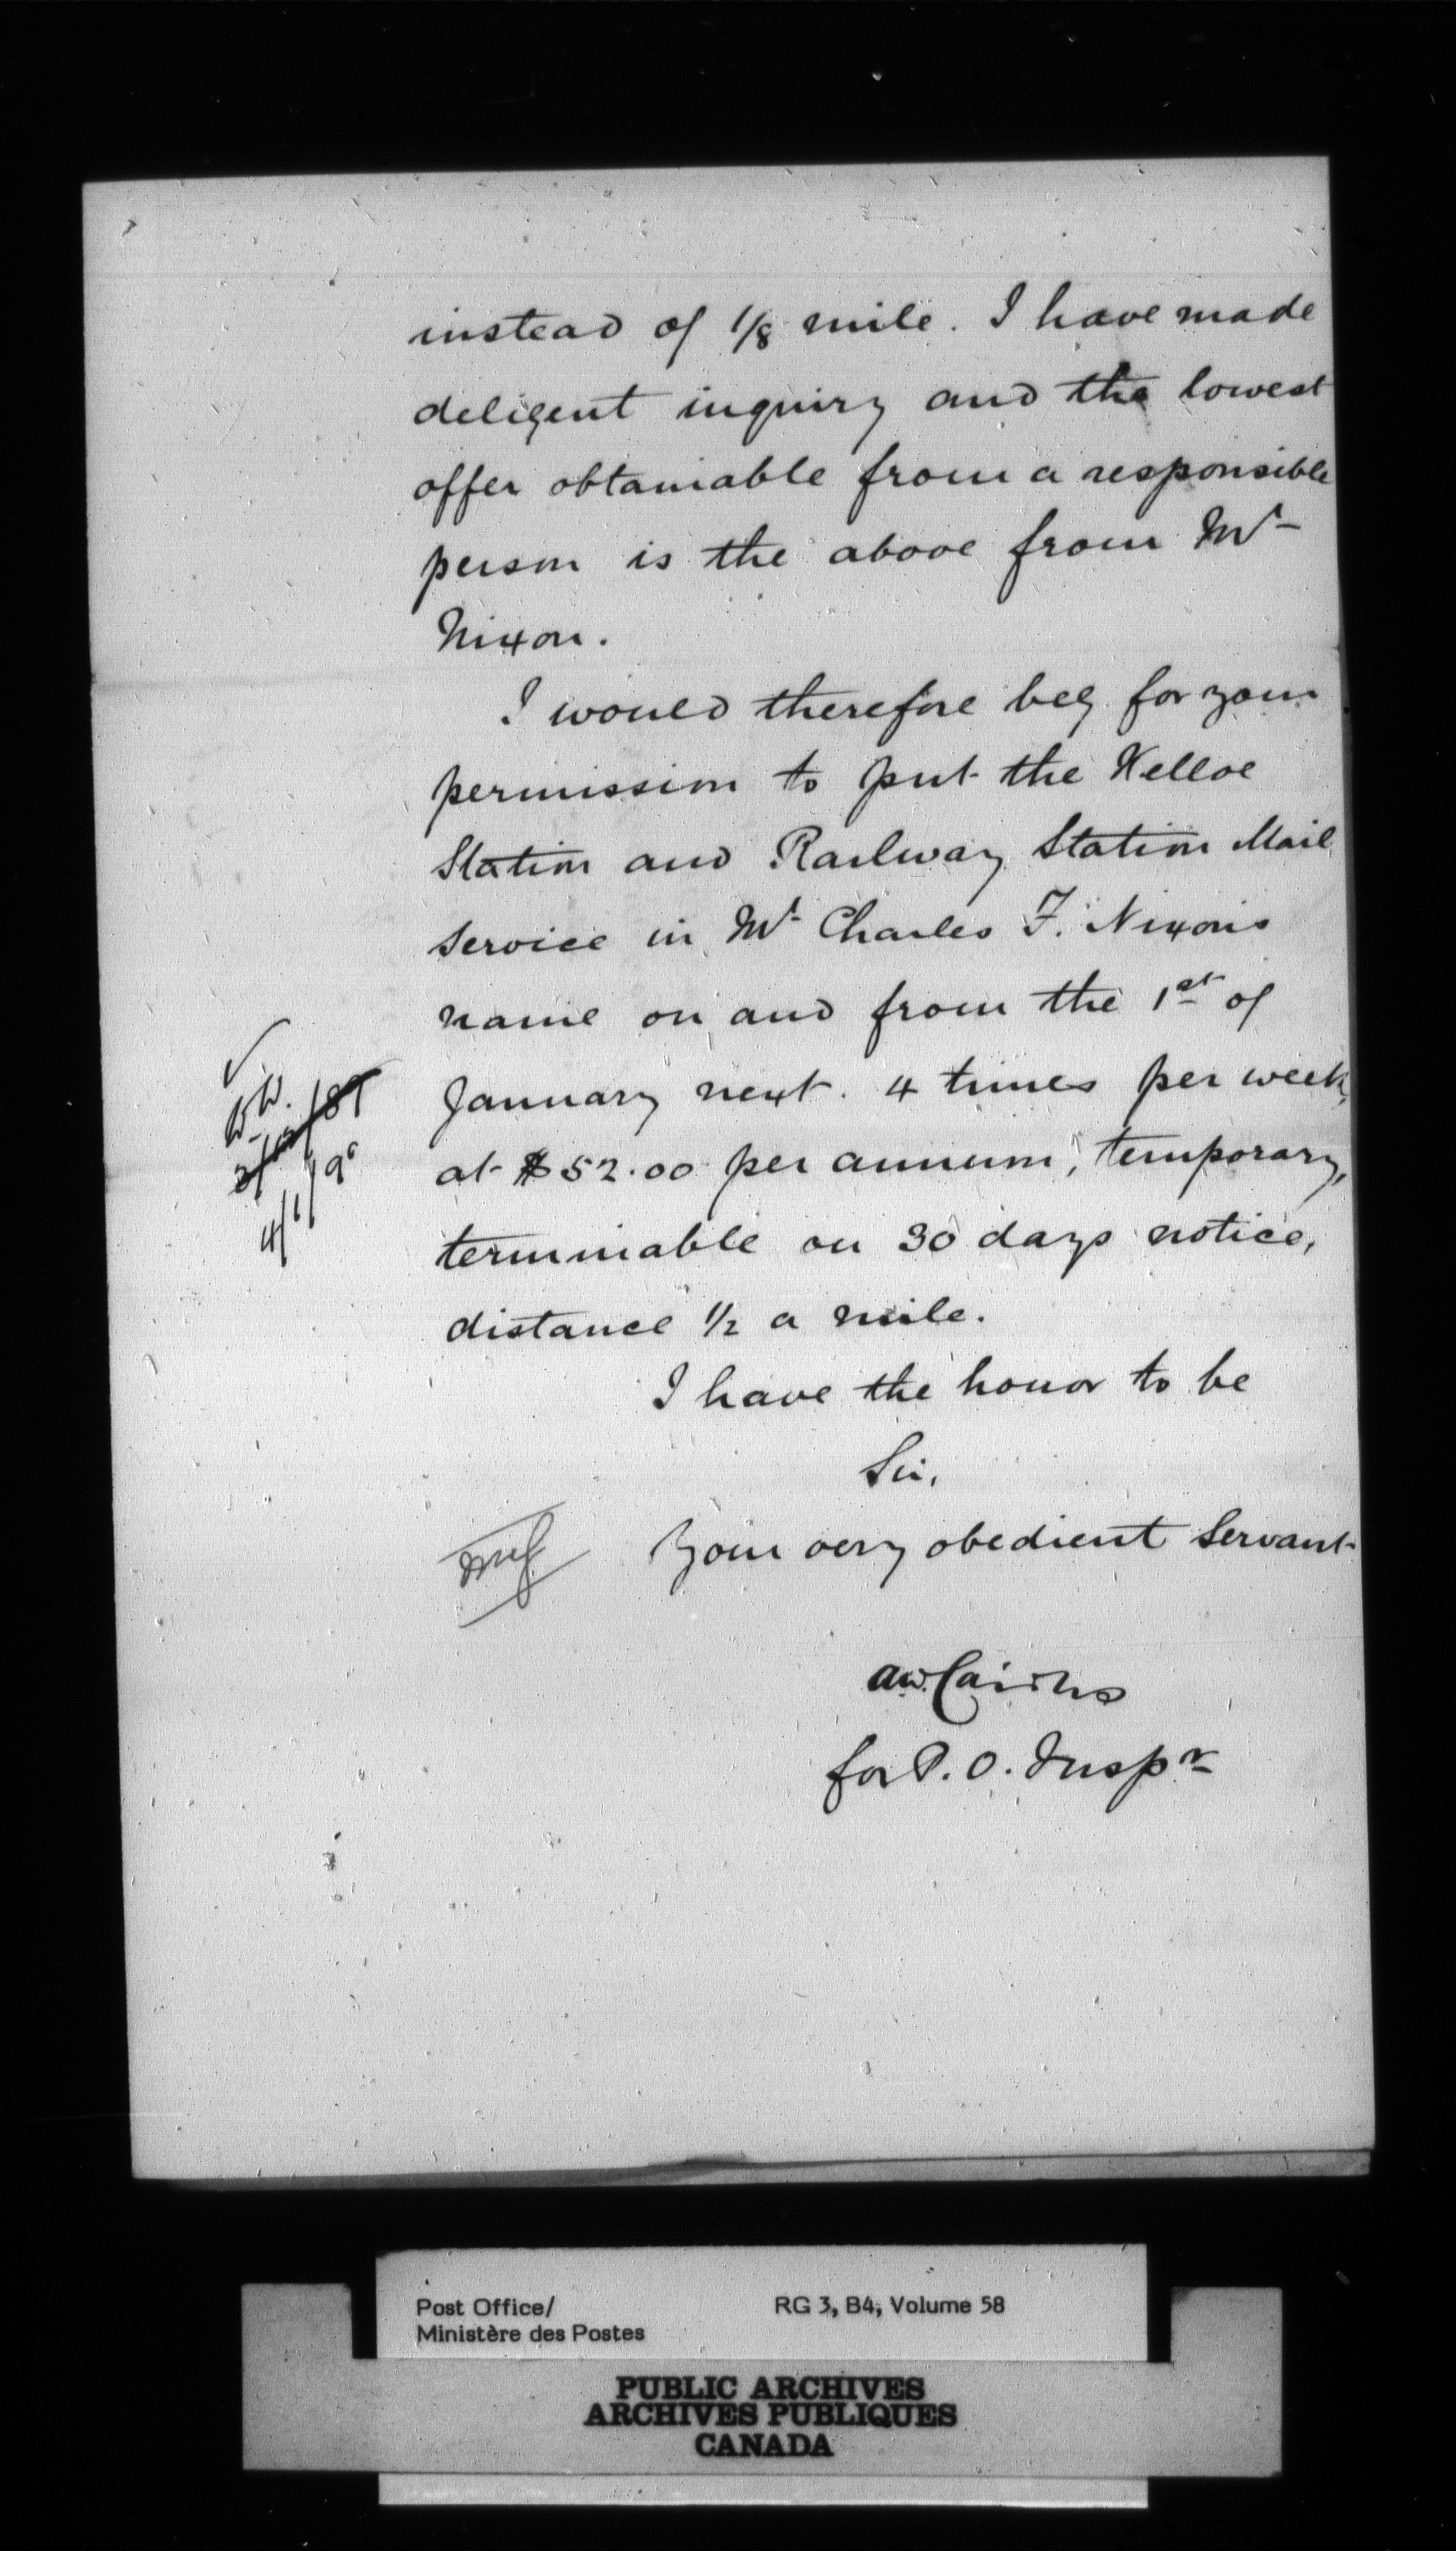 instead of 1/8 mile. I have made
deligent inquiry and the lowest
offer obtainable from a responsible
person is the above from Mr
Nixon.
I would therefore beg for your
permission to put the Kelloe
Station and Railway Station Mail
Service in Mr Charles F. Nixons
name on and from the 1st of
January next. 4 times per week,
at $52.00 per annum, temporary,
terminable on 30 days notice,
distance 1/2 a mile.
I have the honor to be
Sir,
Your very obedient Servant
AW. Cairns
for P.O. Inspr
4/1/90
Post Office/
Ministère des Postes
RG 3, B4, Volume 58
PUBLIC ARCHIVES
ARCHIVES PUBLIQUES
CANADA